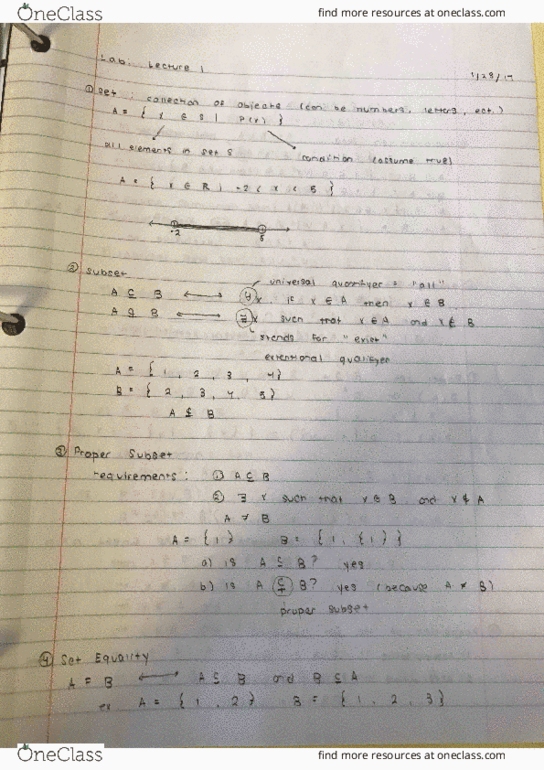 OneClass
find more resources at oneclass.com
Lab: Lecture 1
1/28/17
① Set: collection of objects (can be numbers, letters, ect.)
A = { x ∈ S | P(x) }
all elements in set S
condition (assume true)
A = { x ∈ R | -2 < x < 5 }
-2 5
② Subset
universal quantifyer = "all"
A ⊆ B ⟷ ∀x if x ∈ A then x ∈ B
A ⊈ B ⟷ ∃x such that x ∈ A and x ∉ B
stands for "exist"
extentional qualifyer
A = { 1, 2, 3, 4}
B = { 2, 3, 4, 5}
A ⊈ B
③ Proper Subset
requirements: ① A ⊆ B
② ∃ x such that x ∈ B and x ∉ A
A ≠ B
A = {1} B = {1, {1}}
a) is A ⊆ B? yes
b) is A ⊊ B? yes (because A ≠ B)
proper subset
④ Set Equality
A = B ⟷ A ⊆ B and B ⊆ A
ex A = {1, 2} B = {1, 2, 3}
OneClass
find more resources at oneclass.com